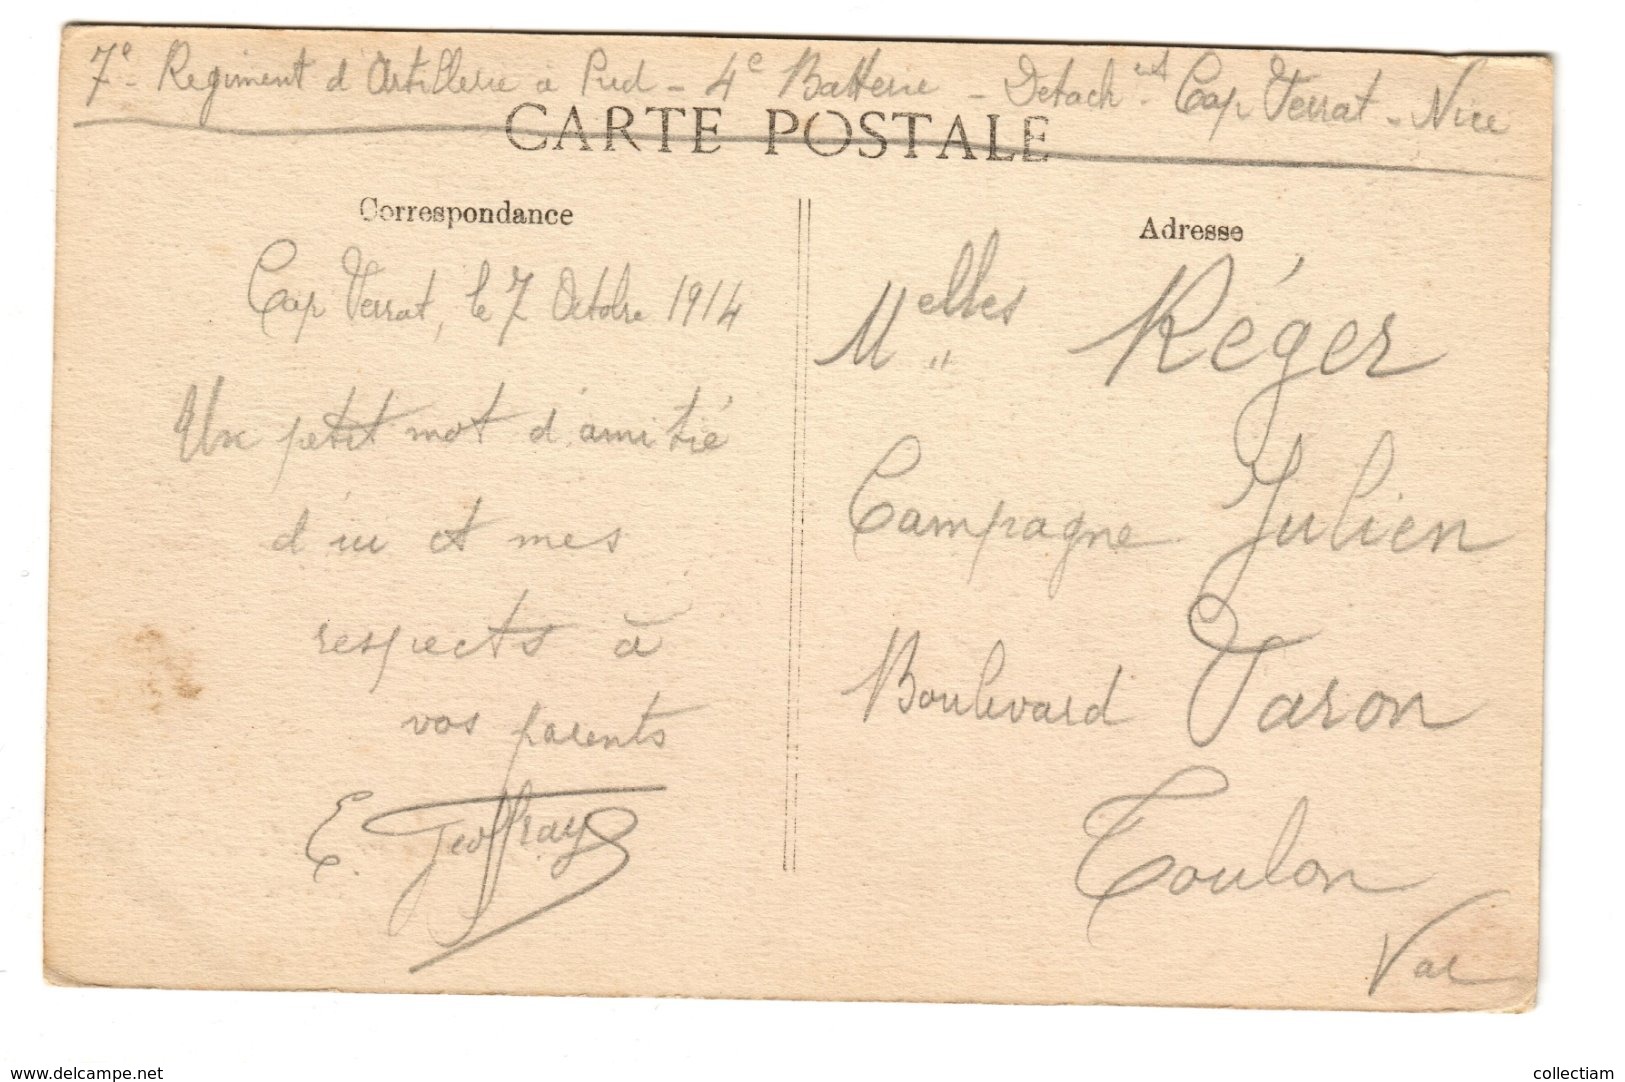 7e - Regiment d'Artillerie à Pied - 4e Batterie - Detachnt Cap Ferrat - Nice
CARTE POSTALE
Correspondance
Cap Ferrat, le 7 Octobre 1914
Un petit mot d'amitié
d'ici et mes
respects à
vos parents
E. Geoffray
Adresse
Melles Réger
Campagne Julien
Boulevard Faron
Toulon
Var
www.delcampe.net
collectiam